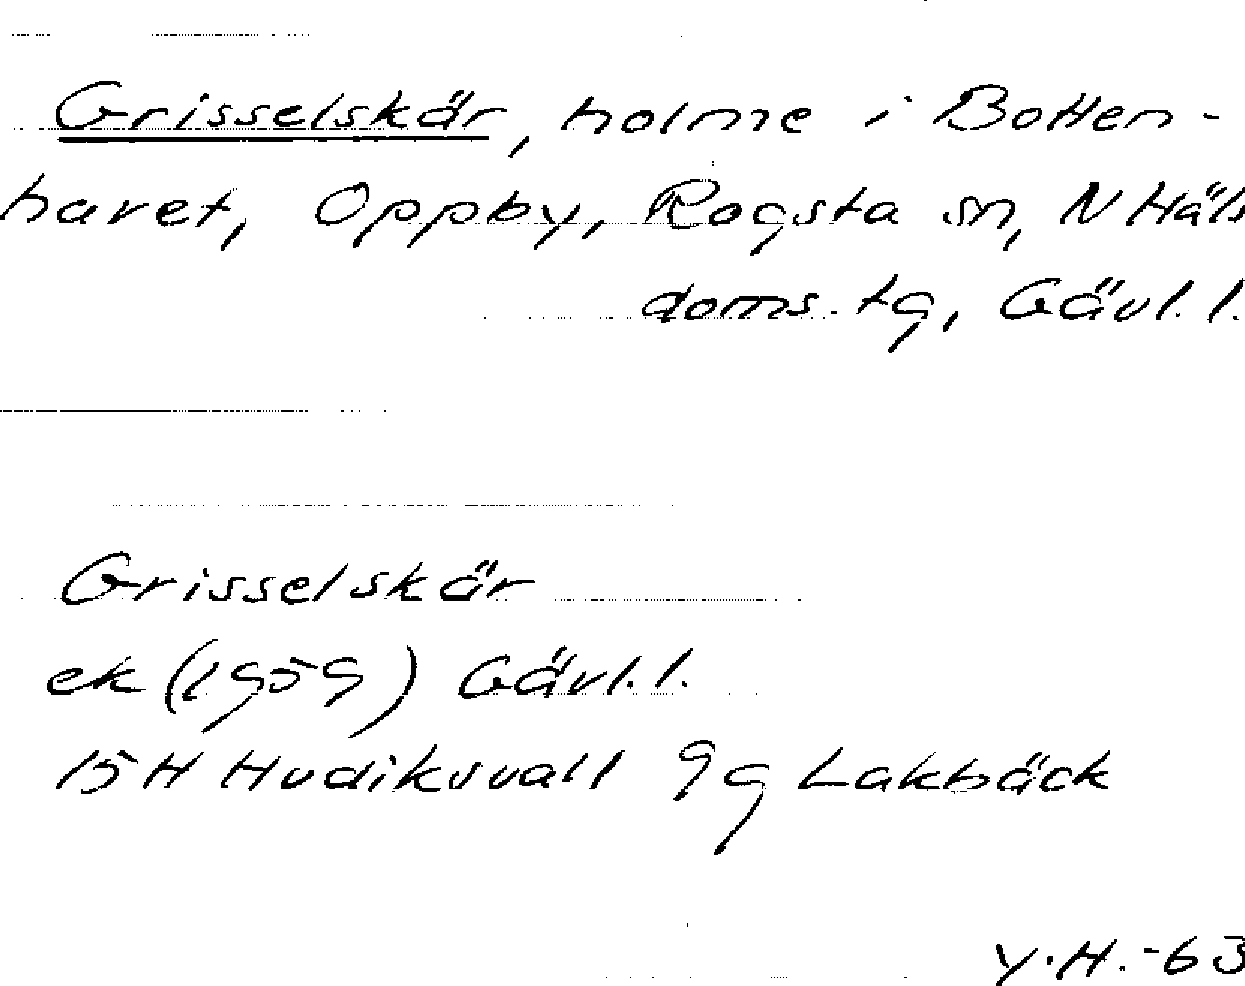 Grisselskär, holme i Botten-
havet, Oppby, Rogsta sn, N Häls
doms. tg, Gävl. l.
Grisselskär
ek (1959) Gävl. l.
15H Hudiksvall 9g Lakbäck
Y.H.-63